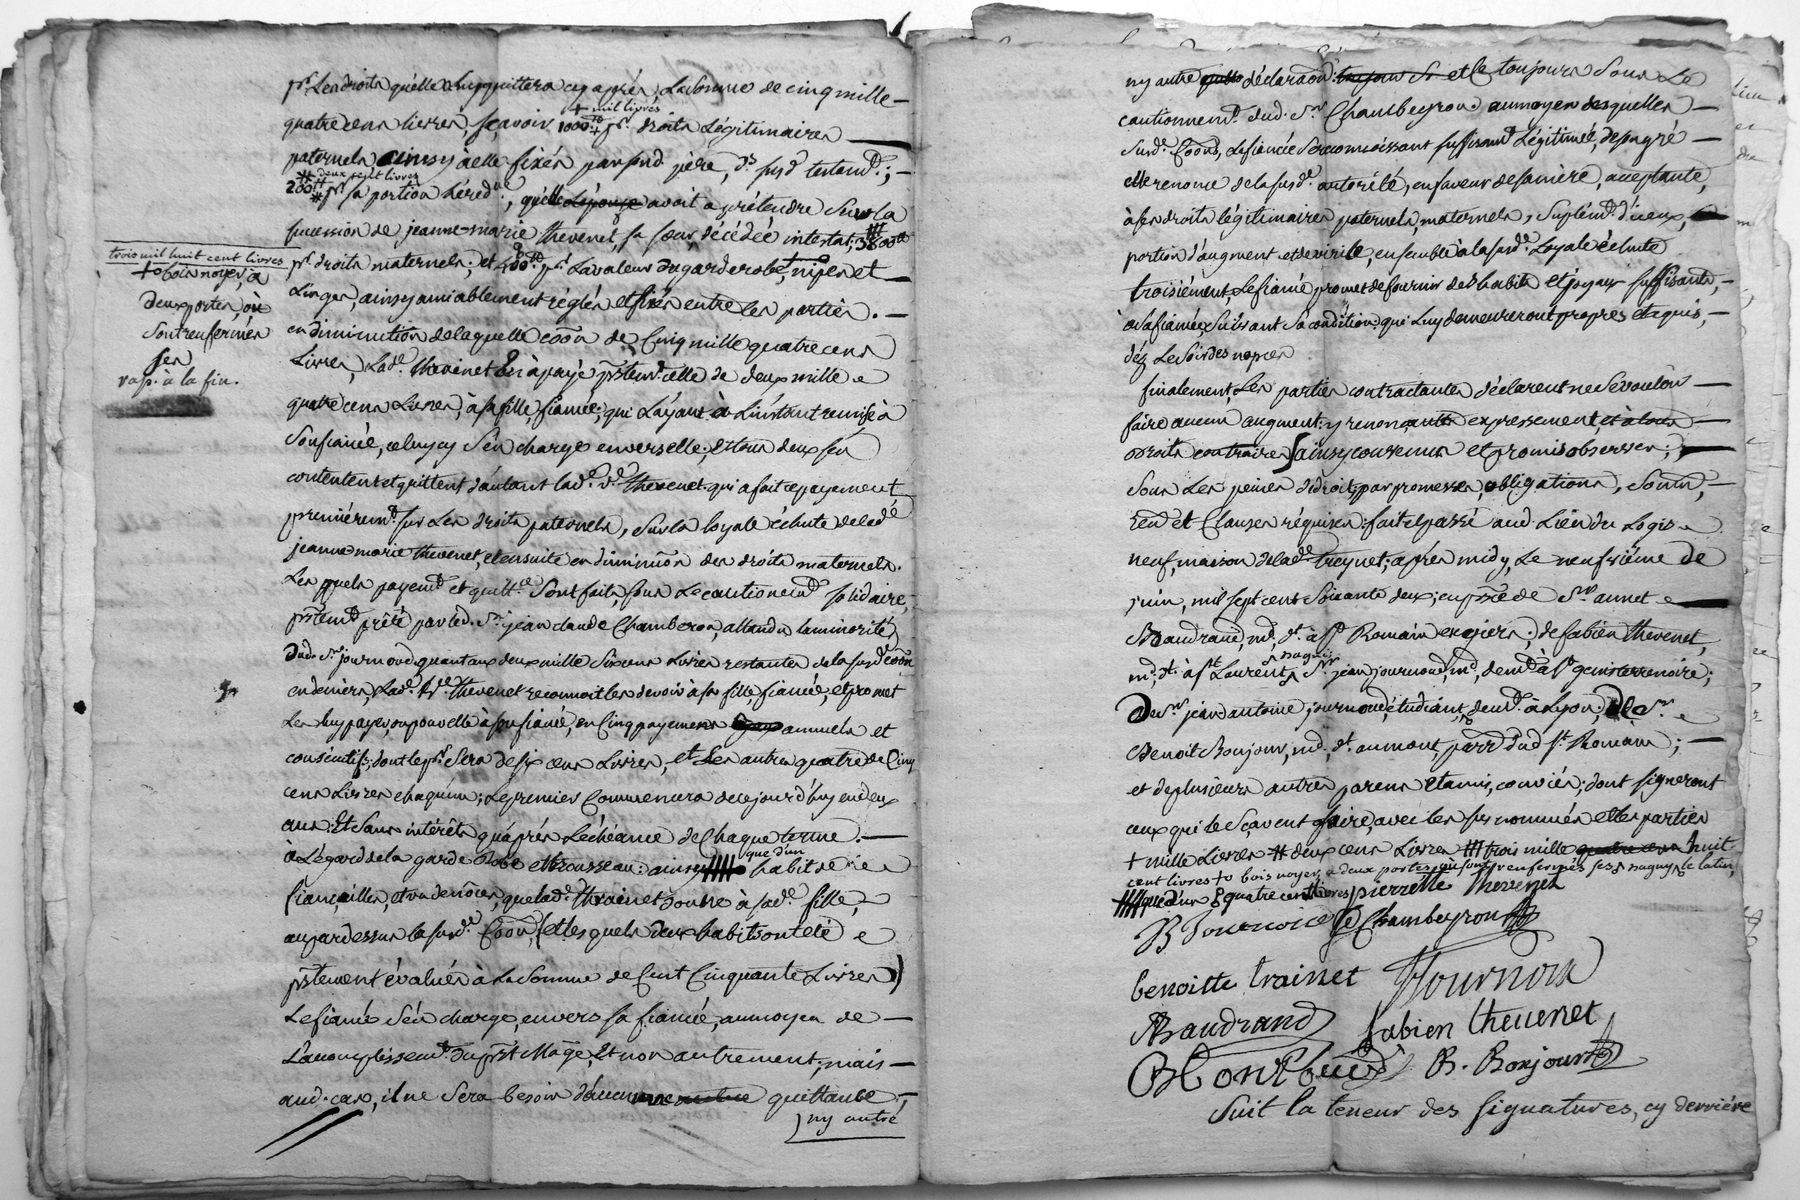 pr. Les droits qu'elle luy quittera cy après, La Somme de cinq mille
quatre cens livres, sçavoir + mil livres 1000 ₶ + pr. droits Légitimaires
paternels ainsy à elle fixés par sond. père, ds. susd. testamt.;
# deux cent livres
200 ₶ # pr sa portion héredre., qu'elle L'épouse avoit a prétendre Sur la
sucession de jeanne-marie thevenet, sa sœur, décédée intestat; 3800 ₶
pr. droits maternels; et 400 ₶ pr. La valeur du garderobe, nipes et
Linges, ainsy amiablement réglés et fixés entre les parties.
en diminution de laquelle coôn de Cinq mille quatre cens
Livres, Lad. thevenet en à payé pñtemt. celle de deux mille
quatre cens Livres, à sa fille, fiancée; qui L'ayant à L'instant remise à
Son fiancé, celuy cy S'en charge envers elle; et tous deux s'en
contentent et quittent d'autant lad. ve. thevenet. qui a fait ce payement
premièremt. sur Les droits paternels, Sur la loyale échute de lade
jeanne marie thevenet, et ensuite en diminuôn des droits maternels.
Les quels payemt. et quittce. Sont faits, sous Le cautionemt. solidaire,
pñtemt. prêté par led. Sr. jean claude Chamberon, attandu la minorité
dud. Sr. journoud. quant aux deux mille Six cens Livres restantes de la susd. coôn
en deniers, Lad. ve. thevenet reconnoit les devoir à sa fille, fiancée, et promet
Les luy payer, ou pour elle à son fiancé, en Cinq payemens annuels et
consécutifs; dont le pr. Sera de six cens Livres, et Les autres quatre de Cinq
cens Livres chaqu'un; Le premier Commencera de ce jourd'huy en deux
ans; Et Sans intérêts qu'après L'échéance de Chaque terme.
à L'égard de la garde Robe et trousseau: ainsy que d'un habit de
fiançailles, et un de nôces, que lad. thevenet donne à sad. fille,
au par dessus la susd. Coôn, (et les quels deux habits ont été
pñtement évalués à La Somme de Cent Cinquante Livres)
Le fiancé S'en charge, envers sa fiancée, au moyen de
L'accomplissemt. du pñt Mâge, Et non autrement; mais
aud. cas, il ne Sera besoin d'aucune autre quittance,
ny autre
trois mil huit cent livres
+o bois noyer, à
deux portes, où
Sont renfermés
ses
rap. à la fin.
ny autre déclaraôn: toujours Sr et Ce toujours Sous Le
cautionnemt. dud. Sr. Chambeyron. au moyen desquelles
Susd. Coôns, La fiancée Se reconnoissant suffisamt. Légitimée, de son gré
elle renonce de la susd. autorité, en faveur de sa mère, acceptante,
à ses droits légitimaires paternels, maternels, Suplémt. d'iceux,
portion d'augment et de virile, ensemble à la susde. Loyale échute
troisièmemt, Le fiancé promet de fournir des habits et joyaux suffisants,
à Sa fiancée, Suivant Sa condition. qui Luy demeureront propres et aquis,
déz Le Soir des nopces
finalement, Les parties contractantes déclarent ne Se vouloir
faire aucun augment; y renonçants expressement, et à tous
droits contraires, ainsy convenus et promis observer;
Sous Les peines de droit, par promesses, obligations, Soumôns,
renôns et Clauses réquises. fait et passé aud. Lieu du Logis
neuf, maison de lade. treynet; après midy, Le neufvième de
juin, mil sept cent Soixante deux; en pñce de Sr. annet
Baudrand, md., dt. à St Romain en giers; de fabien thevenet,
md. dt. à St Laurent dagny; Sr. jean journoud, md., demt. à St genis terrenoire;
de Sr. jean antoine journoud, étudiant, demt. à Lyon; de Sr.
Benoit Bonjour, md., dt. au mont, parr. dud. St. Romain;
et de plusieurs autres parens et amis, conviés; dont signeront
ceux qui le Sçavent faire, avec les sus nommés et les parties
+ mille Livres # deux cens Livres ### trois mille quatre cens huit
cent livres +o bois noyer, à deux portes, où sont renfermés ses
que d'un 8 quatre cent livres pierrette Thevenet
B Journoud Chambeyron
benoitte trainet Journoux
ABaudrand fabien thevenet
B. Bonjour
Suit la teneur des signatures, cy derrière